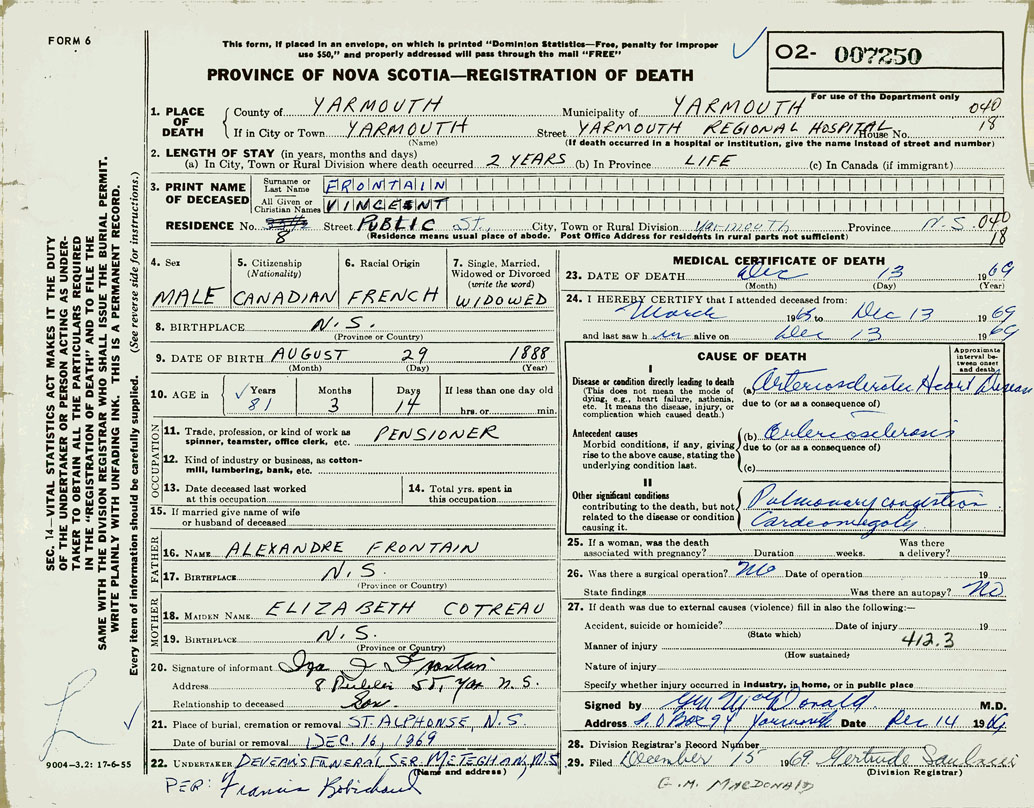 FORM 6
This form, if placed in an envelope, on which is printed "Dominion Statistics—Free, penalty for improper
use $50," and properly addressed will pass through the mail "FREE"
O2- 007250
PROVINCE OF NOVA SCOTIA—REGISTRATION OF DEATH
For use of the Department only
040
18
1. PLACE OF DEATH
County of YARMOUTH Municipality of YARMOUTH
If in City or Town YARMOUTH Street YARMOUTH REGIONAL HOSPITAL House No.
(Name) (If death occurred in a hospital or institution, give the name instead of street and number)
2. LENGTH OF STAY (in years, months and days)
(a) In City, Town or Rural Division where death occurred 2 YEARS (b) In Province LIFE (c) In Canada (if immigrant)
3. PRINT NAME OF DECEASED
Surname or Last Name FRONTAIN
All Given or Christian Names VINCENT
RESIDENCE No. 8 Street PUBLIC St. City, Town or Rural Division Yarmouth Province N.S. 040
18
(Residence means usual place of abode. Post Office Address for residents in rural parts not sufficient)
4. Sex MALE
5. Citizenship (Nationality) CANADIAN
6. Racial Origin FRENCH
7. Single, Married, Widowed or Divorced (write the word) WIDOWED
8. BIRTHPLACE N.S.
(Province or Country)
9. DATE OF BIRTH AUGUST 29 1888
(Month) (Day) (Year)
10. AGE in Years 81 Months 3 Days 14 If less than one day old hrs. or min.
OCCUPATION
11. Trade, profession, or kind of work as spinner, teamster, office clerk, etc. PENSIONER
12. Kind of industry or business, as cotton-mill, lumbering, bank, etc.
13. Date deceased last worked at this occupation
14. Total yrs. spent in this occupation
15. If married give name of wife or husband of deceased
FATHER
16. NAME ALEXANDRE FRONTAIN
17. BIRTHPLACE N.S.
(Province or Country)
MOTHER
18. MAIDEN NAME ELIZABETH COTREAU
19. BIRTHPLACE N.S.
(Province or Country)
20. Signature of informant Frontain
Address 8 Public St, Yar N.S.
Relationship to deceased Son
21. Place of burial, cremation or removal ST. ALPHONSE, N.S
Date of burial or removal DEC. 16, 1969
22. UNDERTAKER DEVEAU'S FUNERAL SER. METEGHAN, N.S
(Name and address)
PER: Francis Robichaud
MEDICAL CERTIFICATE OF DEATH
23. DATE OF DEATH Dec 13 1969
(Month) (Day) (Year)
24. I HEREBY CERTIFY that I attended deceased from:
March 1965 to Dec 13 1969
and last saw h im alive on Dec 13 1969
CAUSE OF DEATH
Approximate interval between onset and death
I
Disease or condition directly leading to death
(This does not mean the mode of dying, e.g., heart failure, asthenia, etc. It means the disease, injury, or complication which caused death.)
(a) Arteriosclerotic Heart Disease
due to (or as a consequence of)
Antecedent causes
Morbid conditions, if any, giving rise to the above cause, stating the underlying condition last.
(b) Arteriosclerosis
due to (or as a consequence of)
(c)
II
Other significant conditions
contributing to the death, but not related to the disease or condition causing it.
Pulmonary congestion
Cardiomegaly
25. If a woman, was the death associated with pregnancy? Duration weeks. Was there a delivery?
26. Was there a surgical operation? No Date of operation 19
State findings Was there an autopsy? No
27. If death was due to external causes (violence) fill in also the following:—
Accident, suicide or homicide? Date of injury 19
(State which)
412.3
Manner of injury
(How sustained)
Nature of injury
Specify whether injury occurred in industry, in home, or in public place
Signed by GM McDonald M.D.
Address P.O Box 94 Yarmouth Date Dec 14 1969
28. Division Registrar's Record Number
29. Filed December 15 1969 Gertrude Saulnier
(Division Registrar)
G. M. MACDONALD
SEC. 14—VITAL STATISTICS ACT MAKES IT THE DUTY
OF THE UNDERTAKER OR PERSON ACTING AS UNDER-
TAKER TO OBTAIN ALL THE PARTICULARS REQUIRED
IN THE "REGISTRATION OF DEATH" AND TO FILE THE
SAME WITH THE DIVISION REGISTRAR WHO SHALL ISSUE THE BURIAL PERMIT.
WRITE PLAINLY WITH UNFADING INK. THIS IS A PERMANENT RECORD.
Every item of information should be carefully supplied. (See reverse side for instructions.)
9004-3.2: 17-6-55